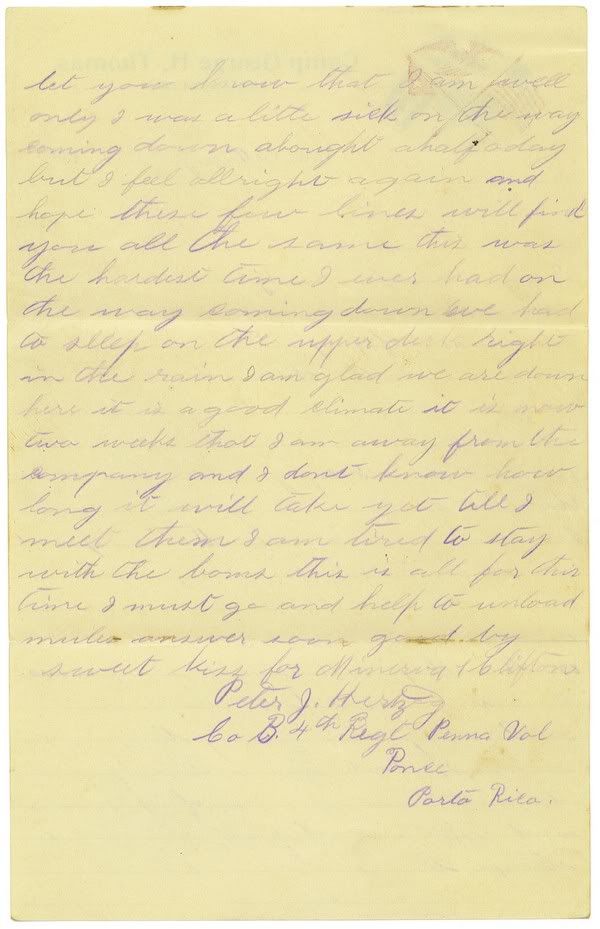 let you know that I am well
only I was a little sick on the way
coming down abought a half a day
but I feel allright again and
hope these few lines will find
you all the same this was
the hardest time I ever had on
the way coming down we had
to sleep on the upper deck right
in the rain I am glad we are down
here it is a good climate it is now
two weeks that I am away from the
company and I dont know how
long it will take yet till I
meet them I am tired to stay
with the boms this is all for this
time I must go and help to unload
mules answer soon good by
sweet kiss for Minerva & Clifton
Peter J. Hertzog
Co B. 4th Regt Penna Vol
Ponce
Porto Rico.